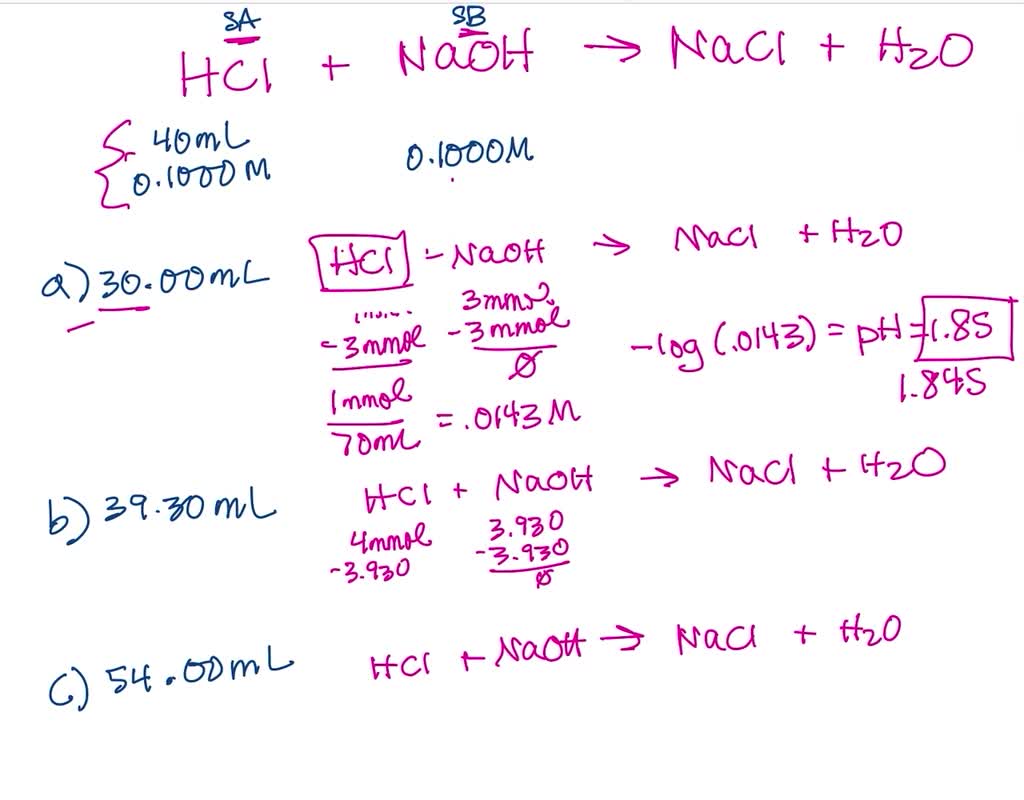 SA SB
HCl + NaOH → NaCl + H2O
40mL
0.1000M 0.1000M
a) 30.00mL HCl - NaOH → NaCl + H2O
3mmol
-3mmol -3mmol
∅
1mmol
70mL = .0143 M
-log(.0143) = pH = 1.85
1.845
b) 39.30mL HCl + NaOH → NaCl + H2O
4mmol 3.930
-3.930 -3.930
∅
c) 54.00mL HCl + NaOH → NaCl + H2O